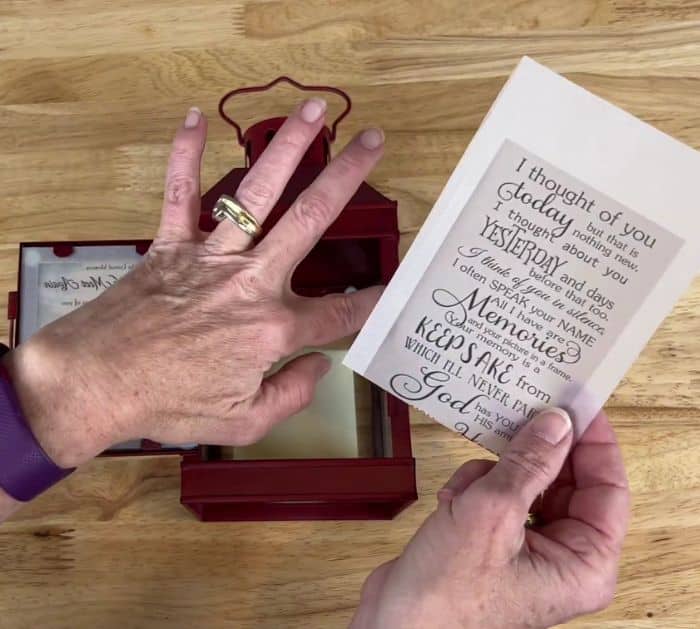 Meet Again
of you
I thought of you
today but that is
nothing new.
I thought about you
YESTERDAY and days
before that too.
I think of you in silence,
I often SPEAK your NAME
All I have are
Memories
and your picture in a frame.
Your memory is a
KEEPSAKE from
WHICH I'LL NEVER PAR
God has you
HIS